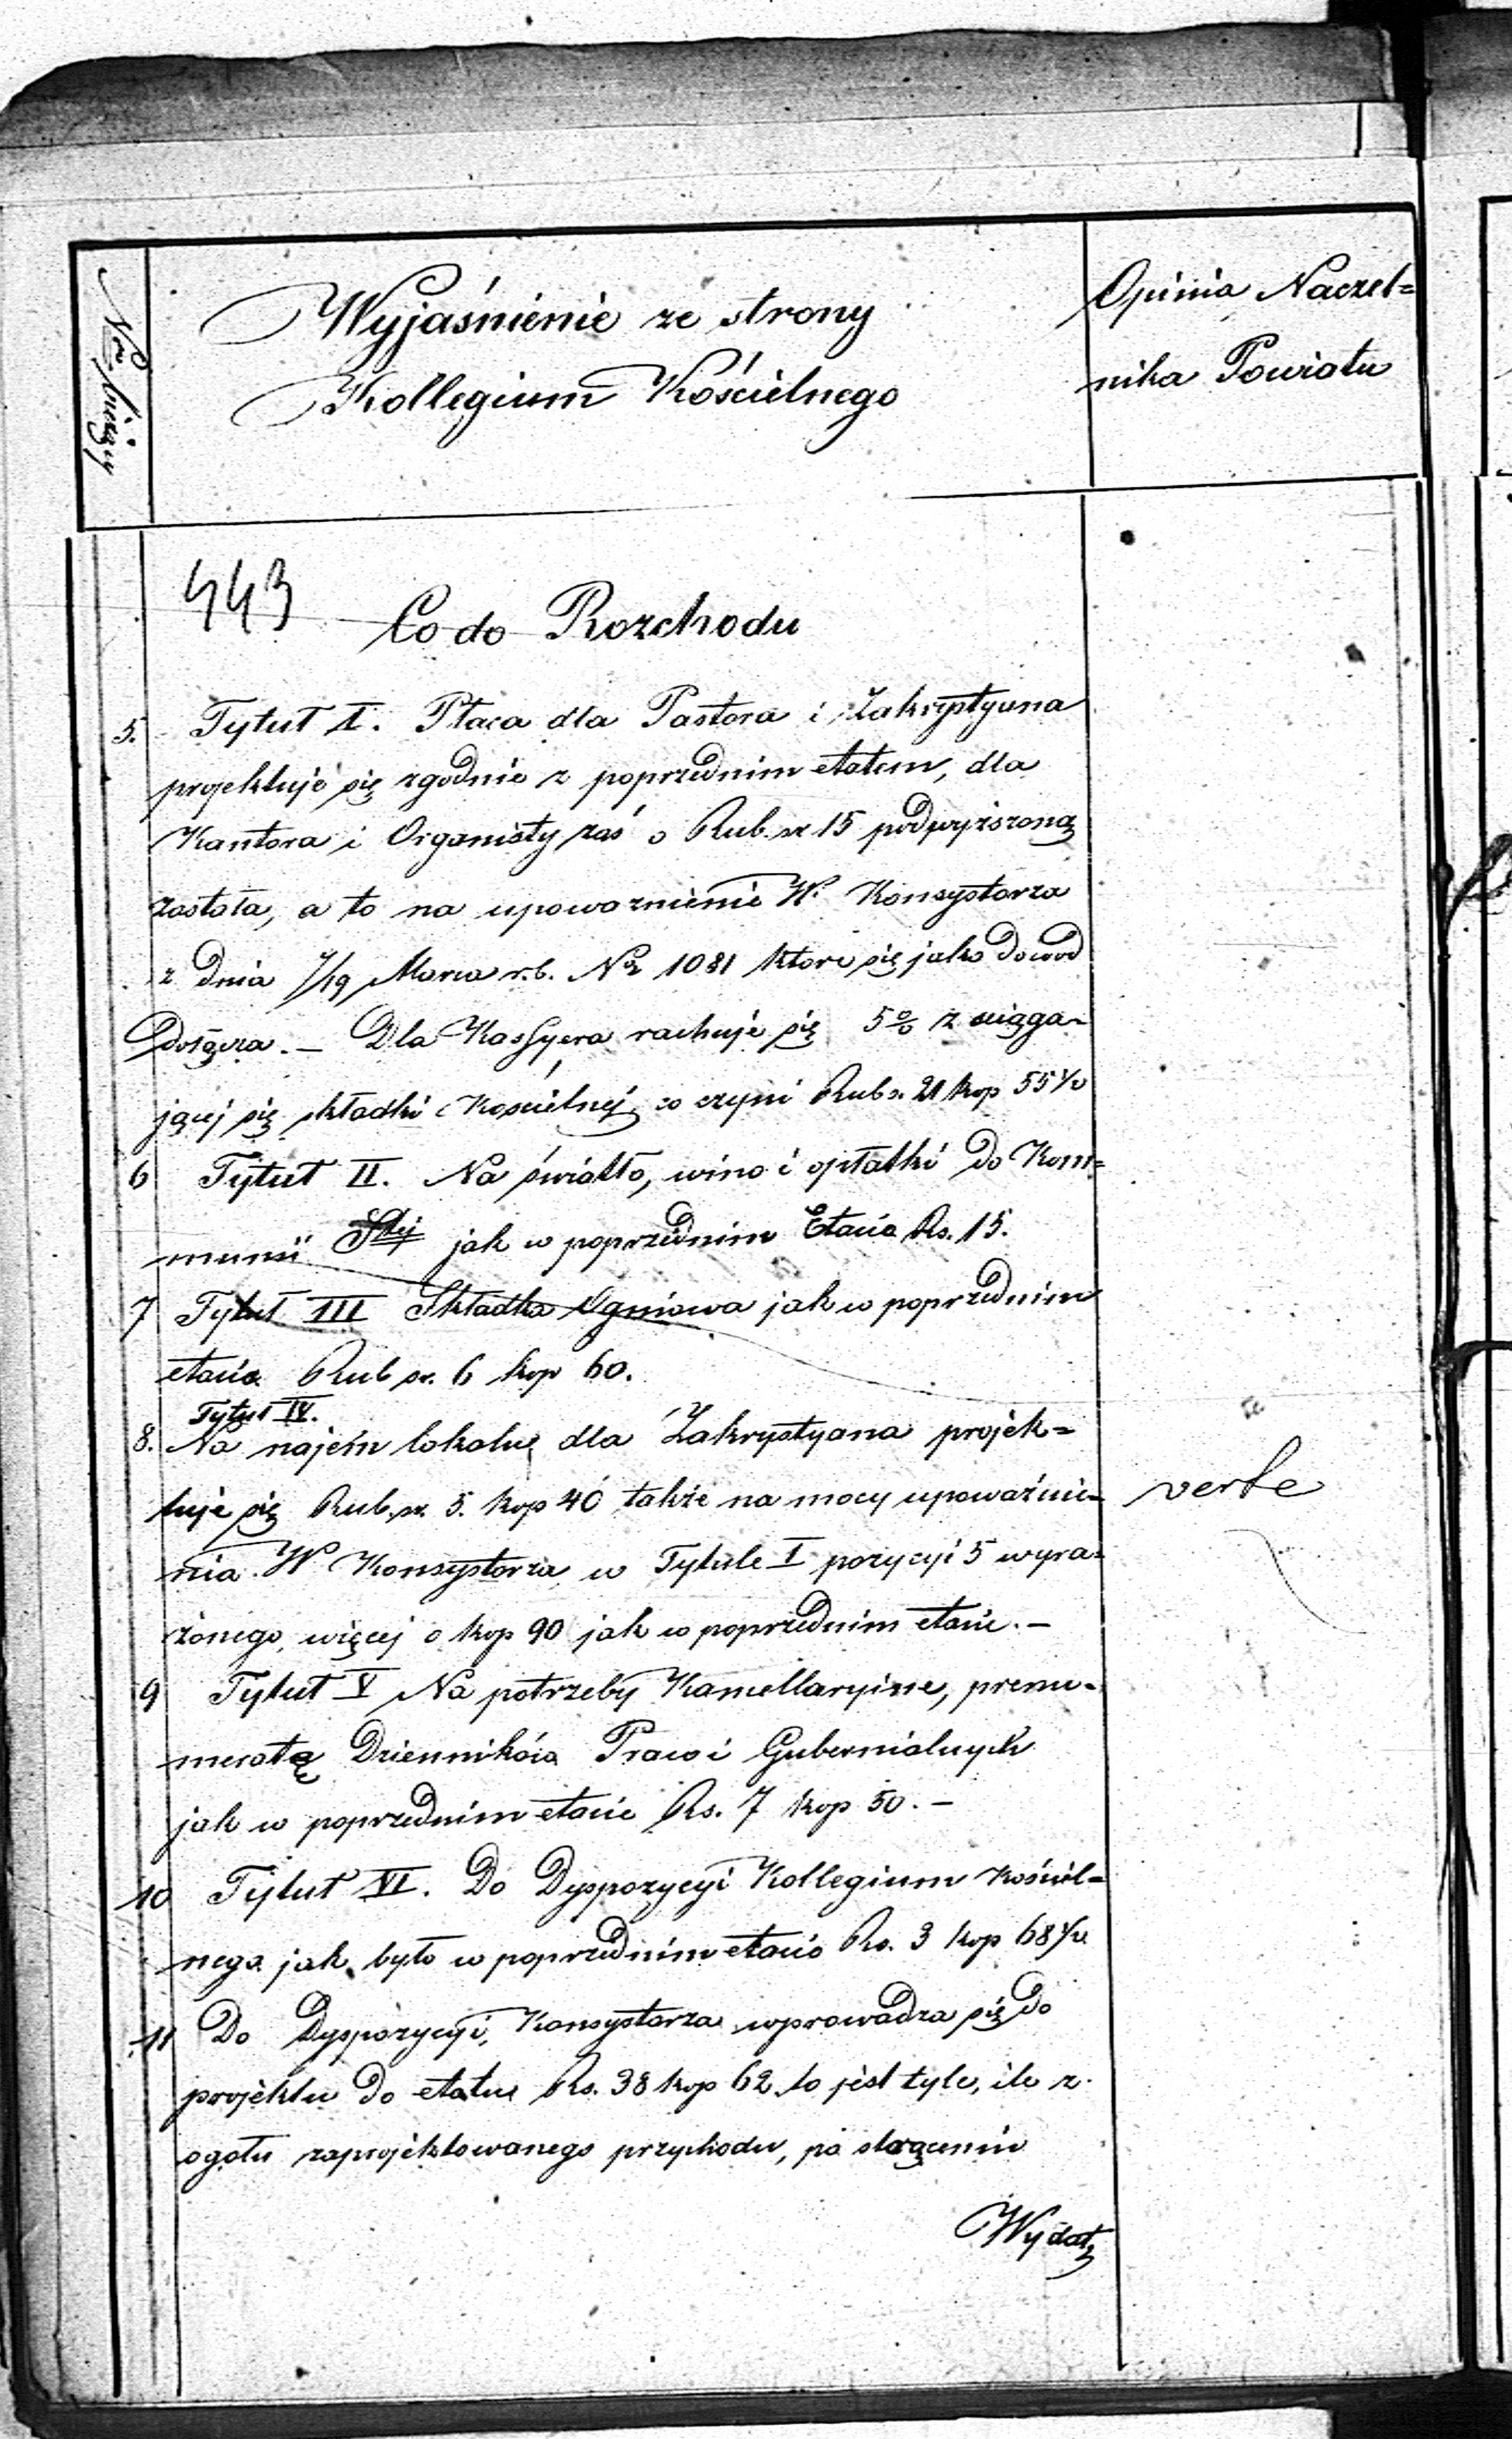 Nr bieżący
Wyjaśnienie ze strony
Kollegium Kościelnego
Opinia Naczel=
nika Powiatu
443
Co do Rozchodu
5. Tytuł I. Płaca dla Pastora i Zakrystyana
projektuje się zgodnie z poprzednim etatem, dla
Kantora i Organisty zaś o Rub. sr 15 podwyższoną
została, a to na upoważnienie W. Konsystorza
z dnia 7/19 Marca r.b. No 1081 które się jako dowod
dołącza. — Dla Kassyera rachuje się 5% z sciąga=
jącej się składki Kościelnej co czyni Rub s. 21 kop 55 1/2
6 Tytuł II. Na światło, wino i opłatki do Kom=
munii Stej jak w poprzednim Etacie Rs. 15.
7 Tytuł III Składka Ogniowa jak w poprzednim
etacie Rub sr. 6 kop 60.
Tytuł IV.
8. Na najem lokalu dla Zakrystyana projek=
tuje się Rub. sr. 5. kop 40 także na mocy upoważnie=
nia W Konsystorza w Tytule I pozycyi 5 wyra=
żonego, więcej o kop 90 jak w poprzednim etacie. —
verte
9 Tytuł V Na potrzeby Kancellaryine, prenu=
meratę Dzienników Praw i Gubernialnych
jak w poprzednim etacie Rs. 7 kop 50. —
10 Tytuł VI. Do Dyspozycyi Kollegium Kościel=
nego jak było w poprzednim etacie Rs. 3 kop 68 1/2
11 Do Dyspozycyi Konsystorza wprowadza się do
projektu do etatu Rs. 38 kop 62 to jest tyle, ile z
ogółu zaprojektowanego przychodu, po strąceniu